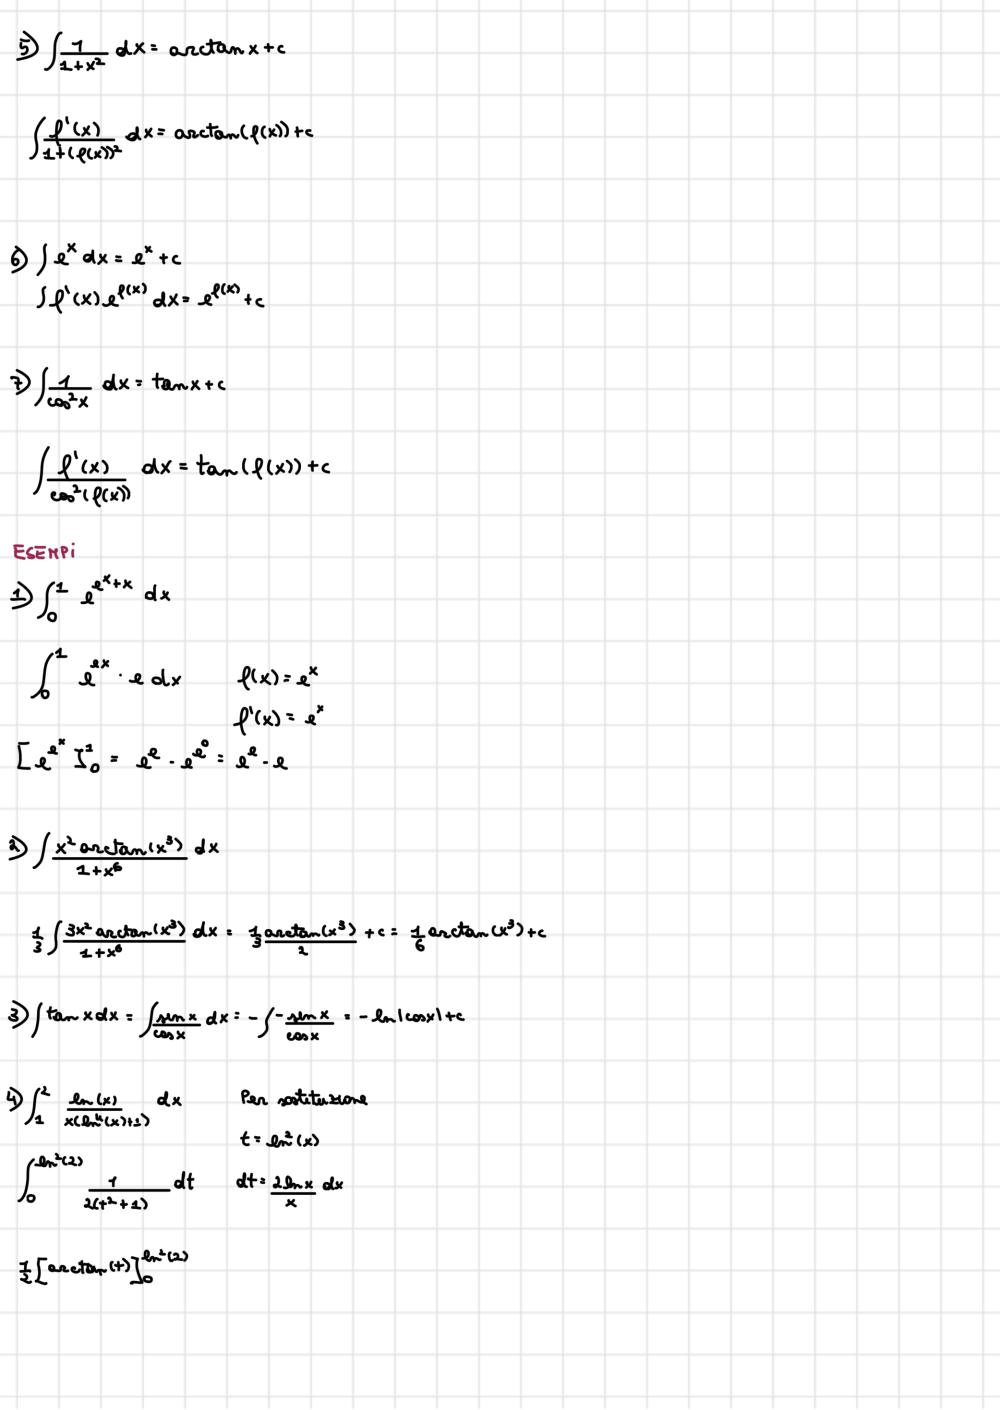 5) ∫ 1/(1+x²) dx = arctan x + c
∫ f'(x)/(1+(f(x))²) dx = arctan(f(x)) + c
6) ∫ eˣ dx = eˣ + c
∫ f'(x) e^(f(x)) dx = e^(f(x)) + c
7) ∫ 1/(cos²x) dx = tan x + c
∫ f'(x)/(cos²(f(x))) dx = tan(f(x)) + c
ESEMPi
1) ∫₀¹ e^(e^x+x) dx
∫₀¹ e^(ex) · e dx f(x) = eˣ
f'(x) = eˣ
[e^(e^x)]₀¹ = e^e - e^(e^0) = e^e - e
2) ∫ (x² arctan(x³))/(1+x⁶) dx
1/3 ∫ (3x² arctan(x³))/(1+x⁶) dx = 1/3 (arctan(x³))/2 + c = 1/6 arctan(x³) + c
3) ∫ tan x dx = ∫ (sin x)/(cos x) dx = - ∫ - (sin x)/(cos x) = - ln|cosx| + c
4) ∫₁² (ln(x))/(x(ln⁴(x)+1)) dx Per sostituzione
t = ln²(x)
∫₀^(ln²(2)) 1/(2(t²+1)) dt dt = (2 ln x)/x dx
1/2 [arctan(t)]₀^(ln²(2))